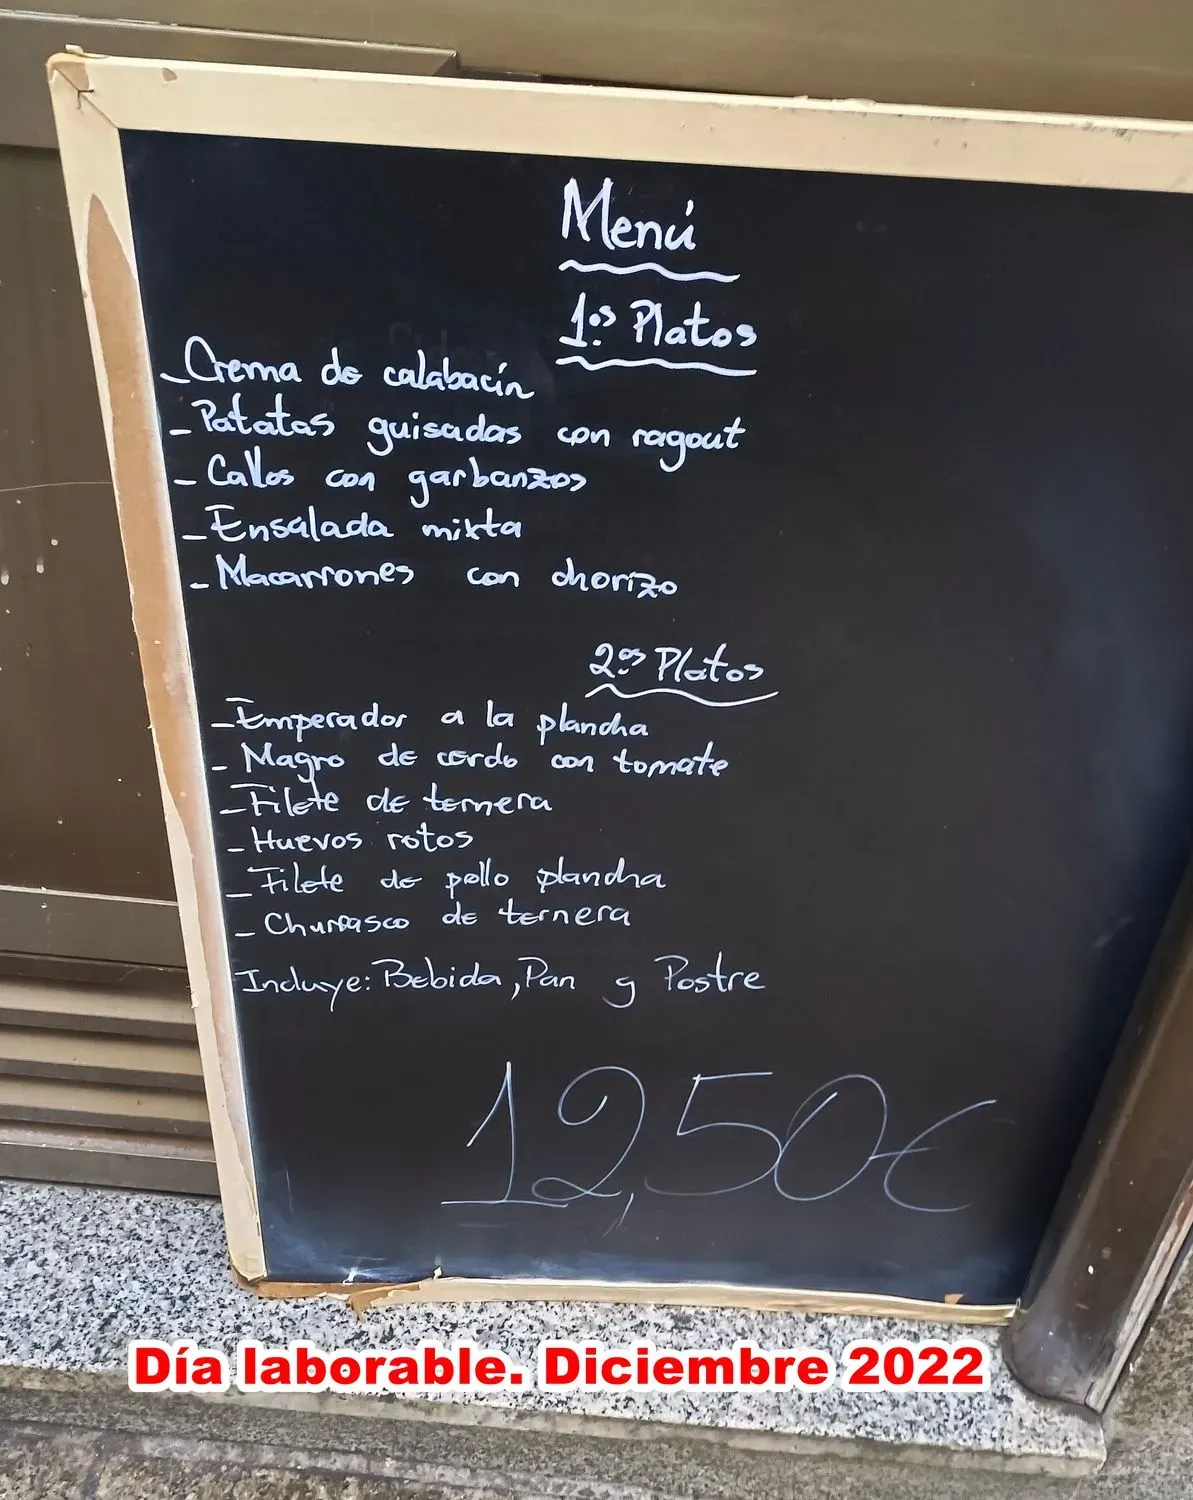 Menú
1.os Platos
- Crema de calabacín
- Patatas guisadas con ragout
- Callos con garbanzos
- Ensalada mixta
- Macarrones con chorizo
2.os Platos
- Emperador a la plancha
- Magro de cerdo con tomate
- Filete de ternera
- Huevos rotos
- Filete de pollo plancha
- Churrasco de ternera
Incluye: Bebida, Pan y Postre
12,50€
Día laborable. Diciembre 2022